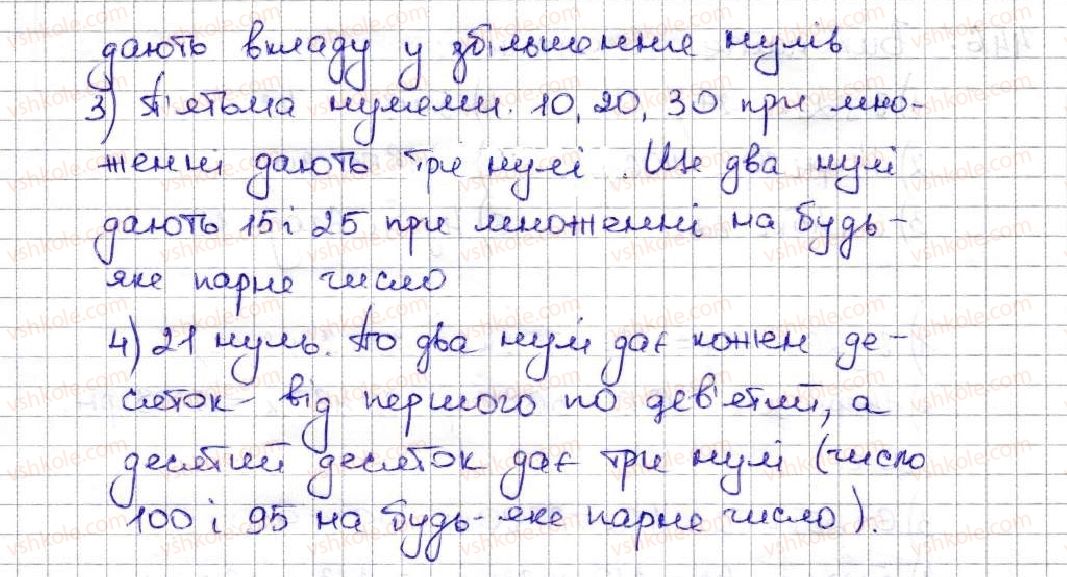 дають вкладу у збільшення нулів
3) П'ятьма нулями. 10, 20, 30 при мно-
женні дають три нулі. Ще два нулі
дають 15 і 25 при множенні на будь-
яке парне число
4) 21 нуль. По два нулі дає кожен де-
сяток від першого по дев'ятий, а
десятий десяток дає три нулі (число
100 і 95 на будь-яке парне число).